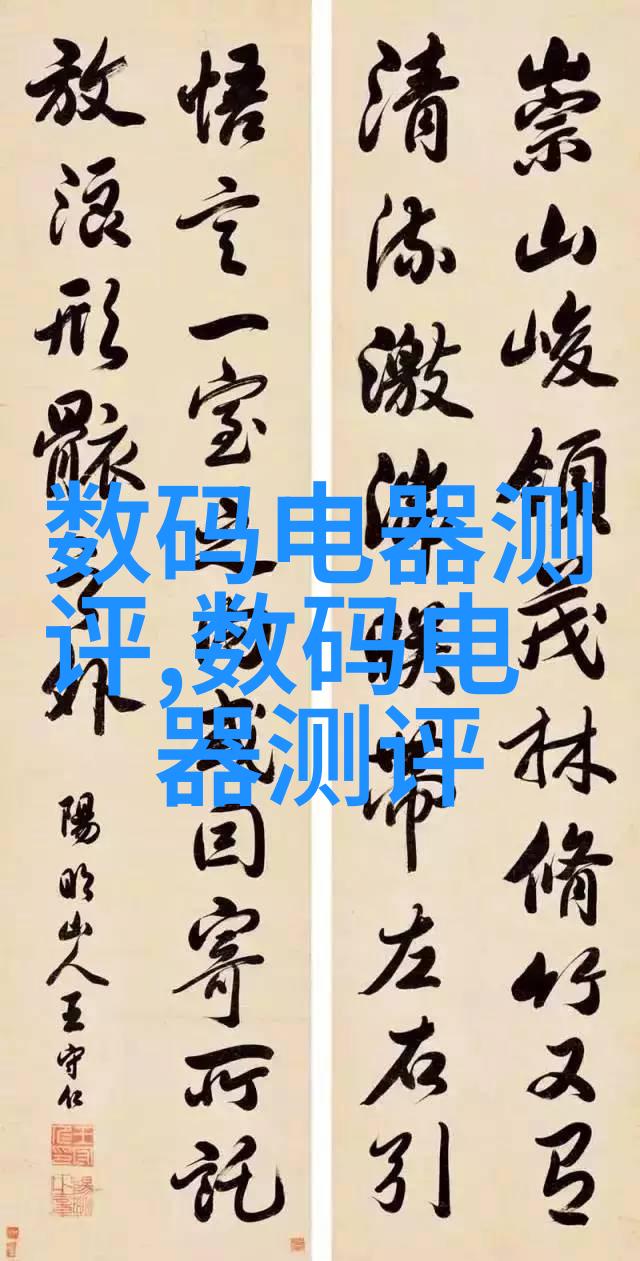 崇山峻領茂林脩竹又有
清流激湍暎帶左右引
悟言一室之內或因寄所託
放浪形骸之外
陽明山人王守仁
数码电器测
评,数码电
器测评